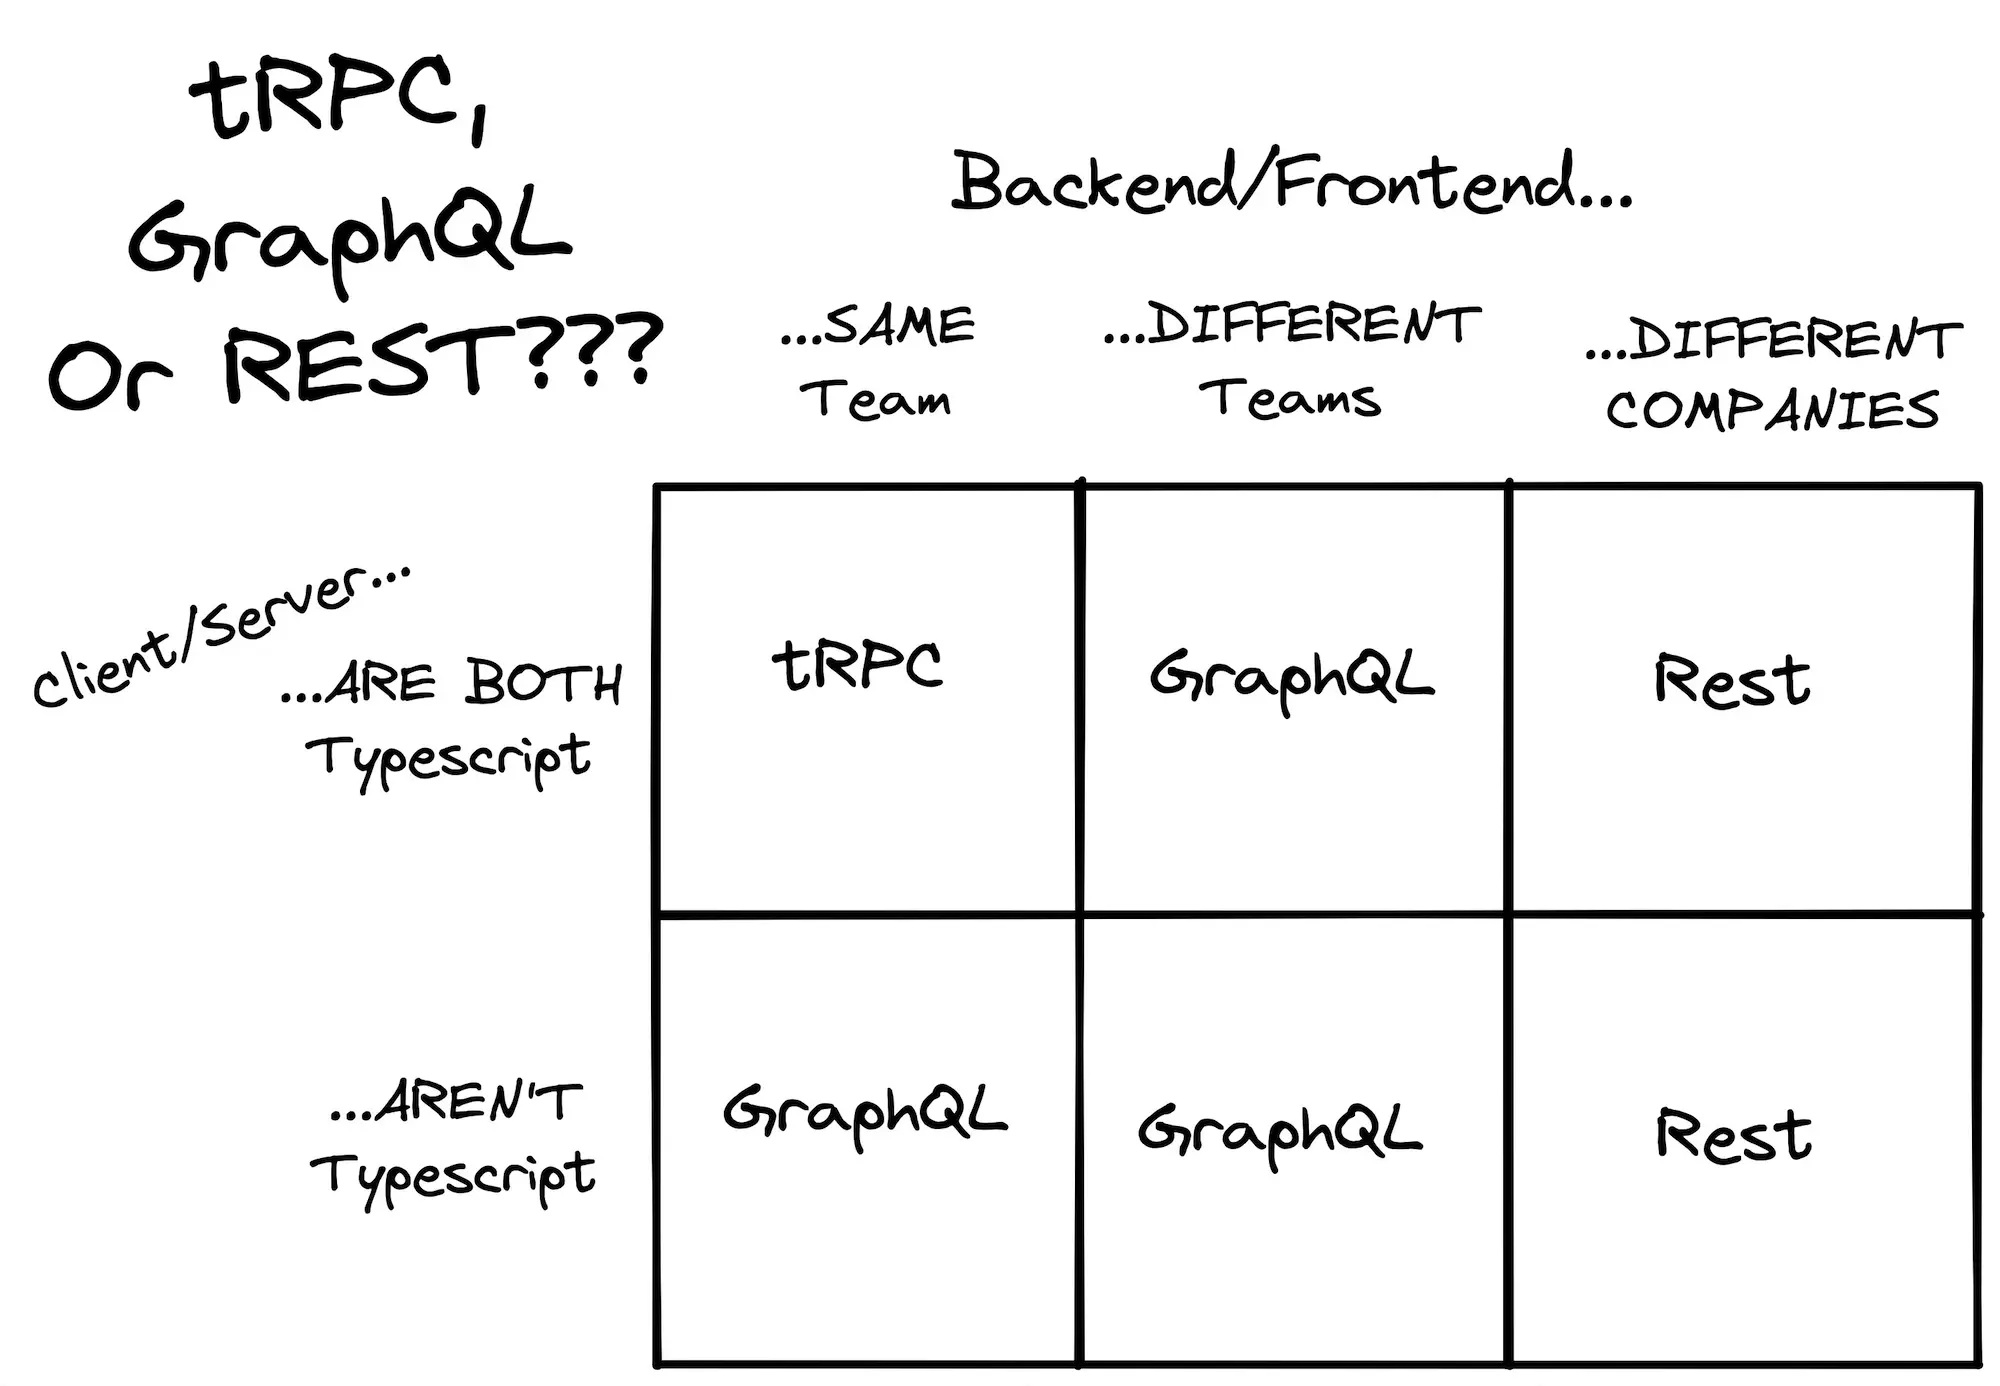 tRPC,
GraphQL
Or REST???
Backend/Frontend...
...SAME
Team
...DIFFERENT
Teams
...DIFFERENT
COMPANIES
Client/Server...
...ARE BOTH
Typescript
tRPC
GraphQL
Rest
...AREN'T
Typescript
GraphQL
GraphQL
Rest